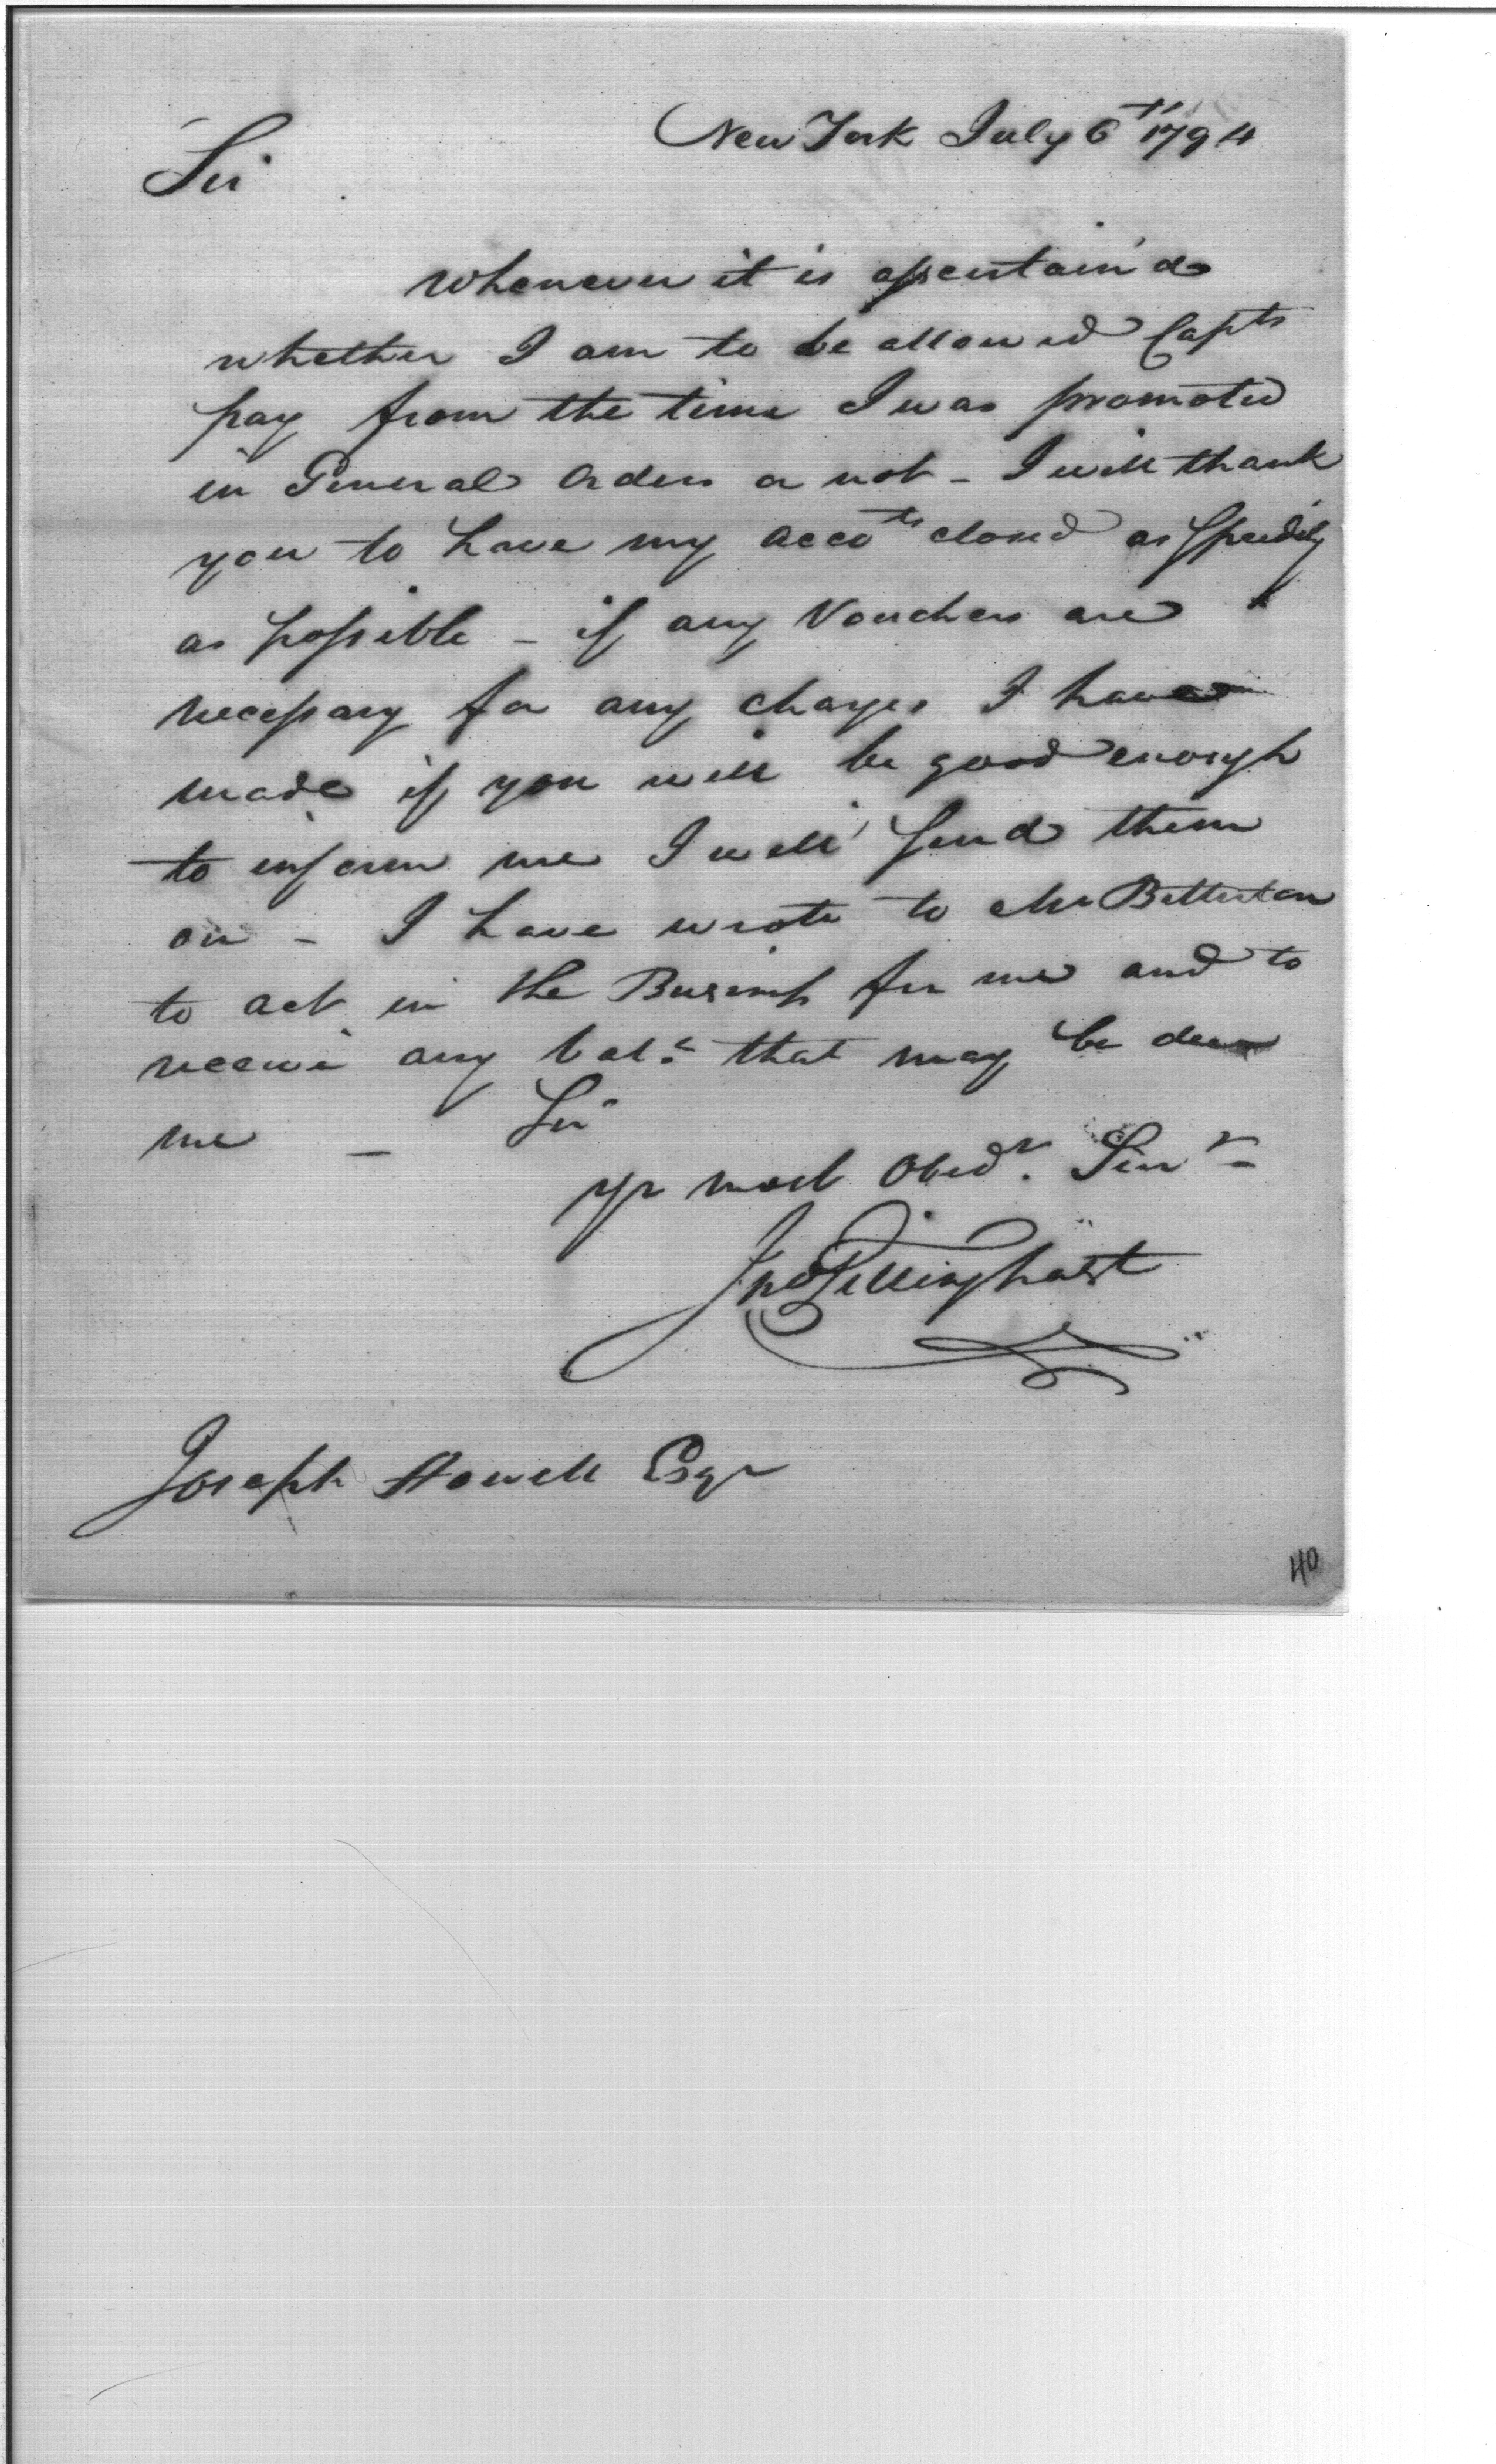 New York July 6th 1794
Sir
Whenever it is assertain'd
whether I am to be allowed Capts
pay from the time I was promoted
in General Orders or not - I will thank
you to have my accots closed as Speedily
as possible - if any Vouchers are
necessary for any charges I have
made if you will be good enough
to inform me I will send them
on - I have wrote to Mr Betterton
to act in the Business for me and to
receive any bale. that may be due
me - Sir
yr most Obedt. Servt
Jno Tillinghast
Joseph Howell Esqr
40